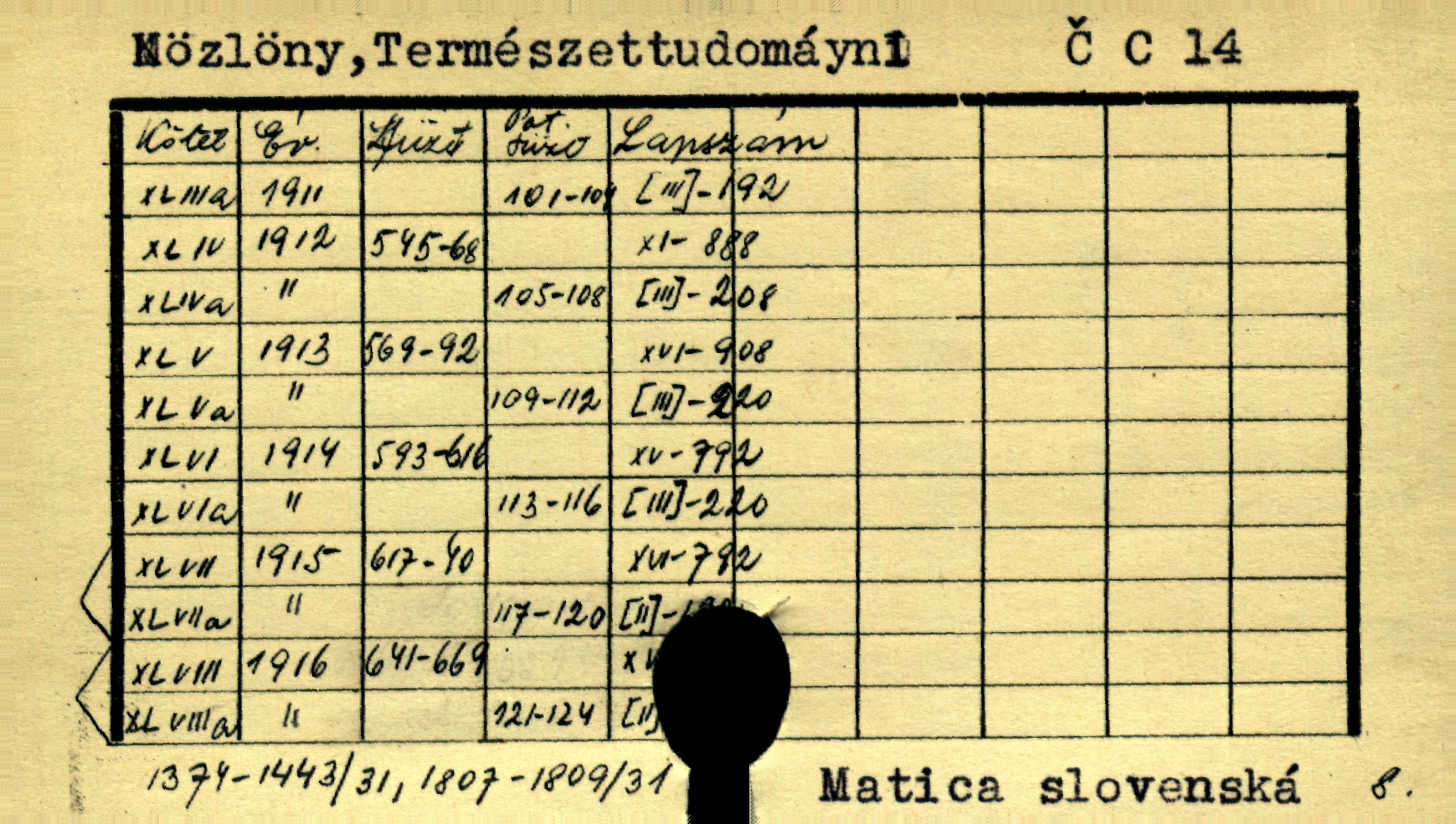 Közlöny,Természettudomáyni Č C 14
Kötet Év. Füzet Pót. füzet Lapszám
XLIIIa 1911 101-104 [III]-192
XLIV 1912 545-68 XI- 888
XLIVa " 105-108 [III]-208
XLV 1913 569-92 XVI- 908
XLVa " 109-112 [III]-220
XLVI 1914 593-616 XV-792
XLVIa " 113-116 [III]-220
XLVII 1915 617-40 XVI-792
XLVIIa " 117-120 [II]-
XLVIII 1916 641-669
XLVIIIa " 121-124 [II]
1374-1443/31, 1807-1809/31
Matica slovenská 8.